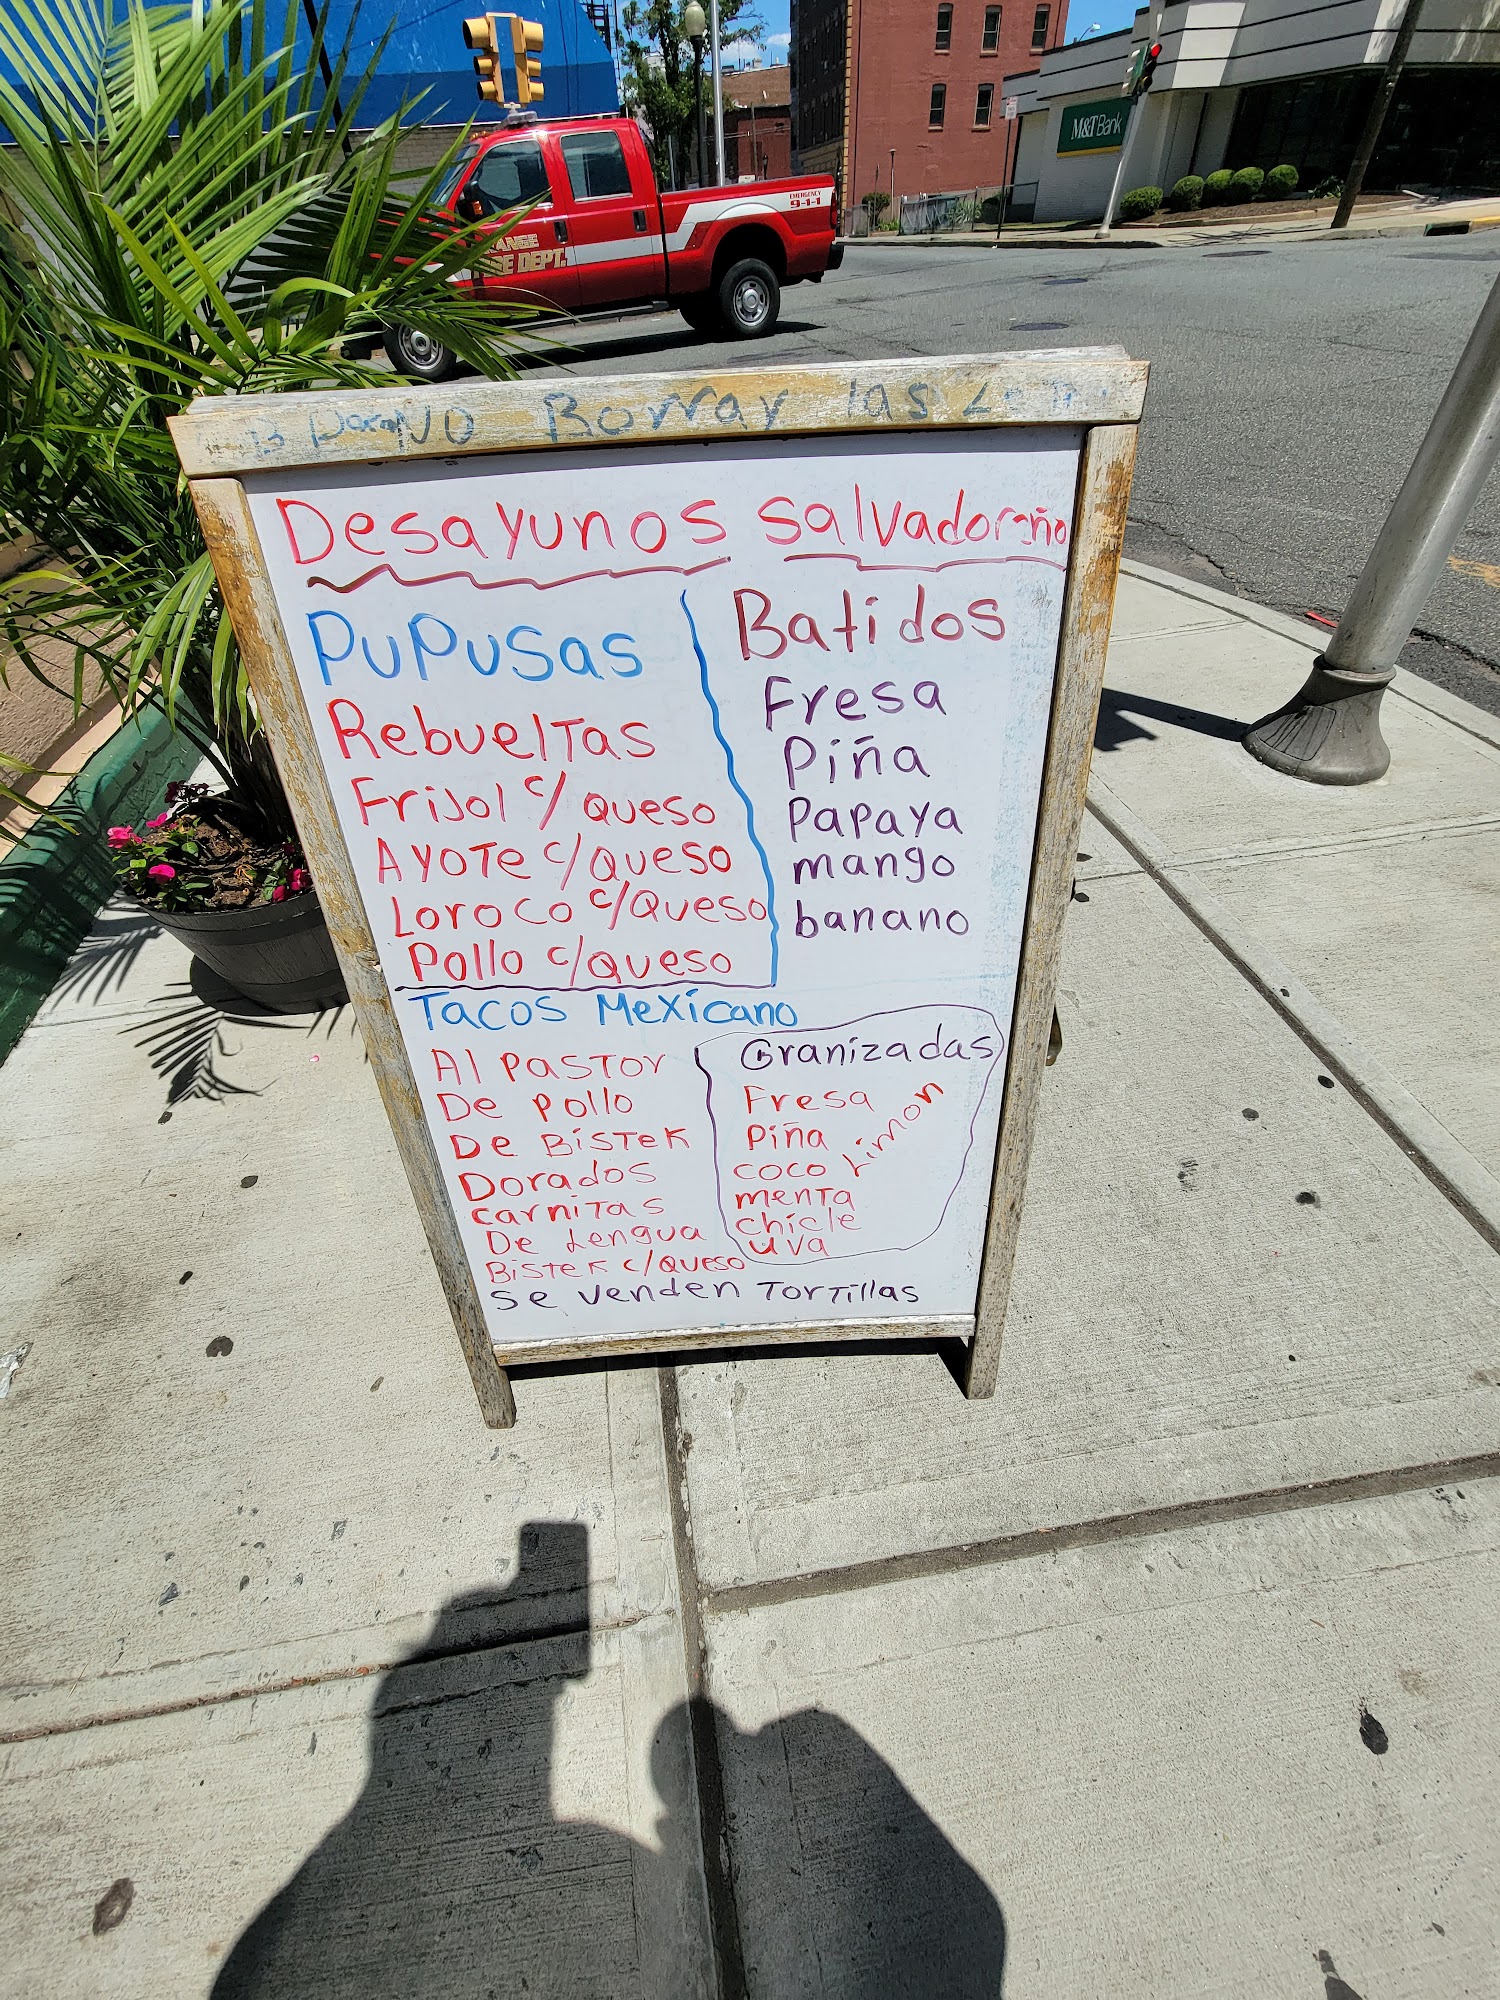 EMERGENCY
9-1-1
DEPT.
M&T Bank
NO Borrar las
Desayunos Salvadoreño
PUPUSAS
Rebueltas
Frijol c/queso
Ayote c/queso
Loroco c/queso
Pollo c/queso
Batidos
Fresa
Piña
Papaya
mango
banano
Tacos Mexicano
Al Pastor
De Pollo
De Bistek
Dorados
carnitas
De Lengua
Bistek c/queso
Granizadas
Fresa
Piña
coco Limon
menta
chicle
uva
se venden Tortillas